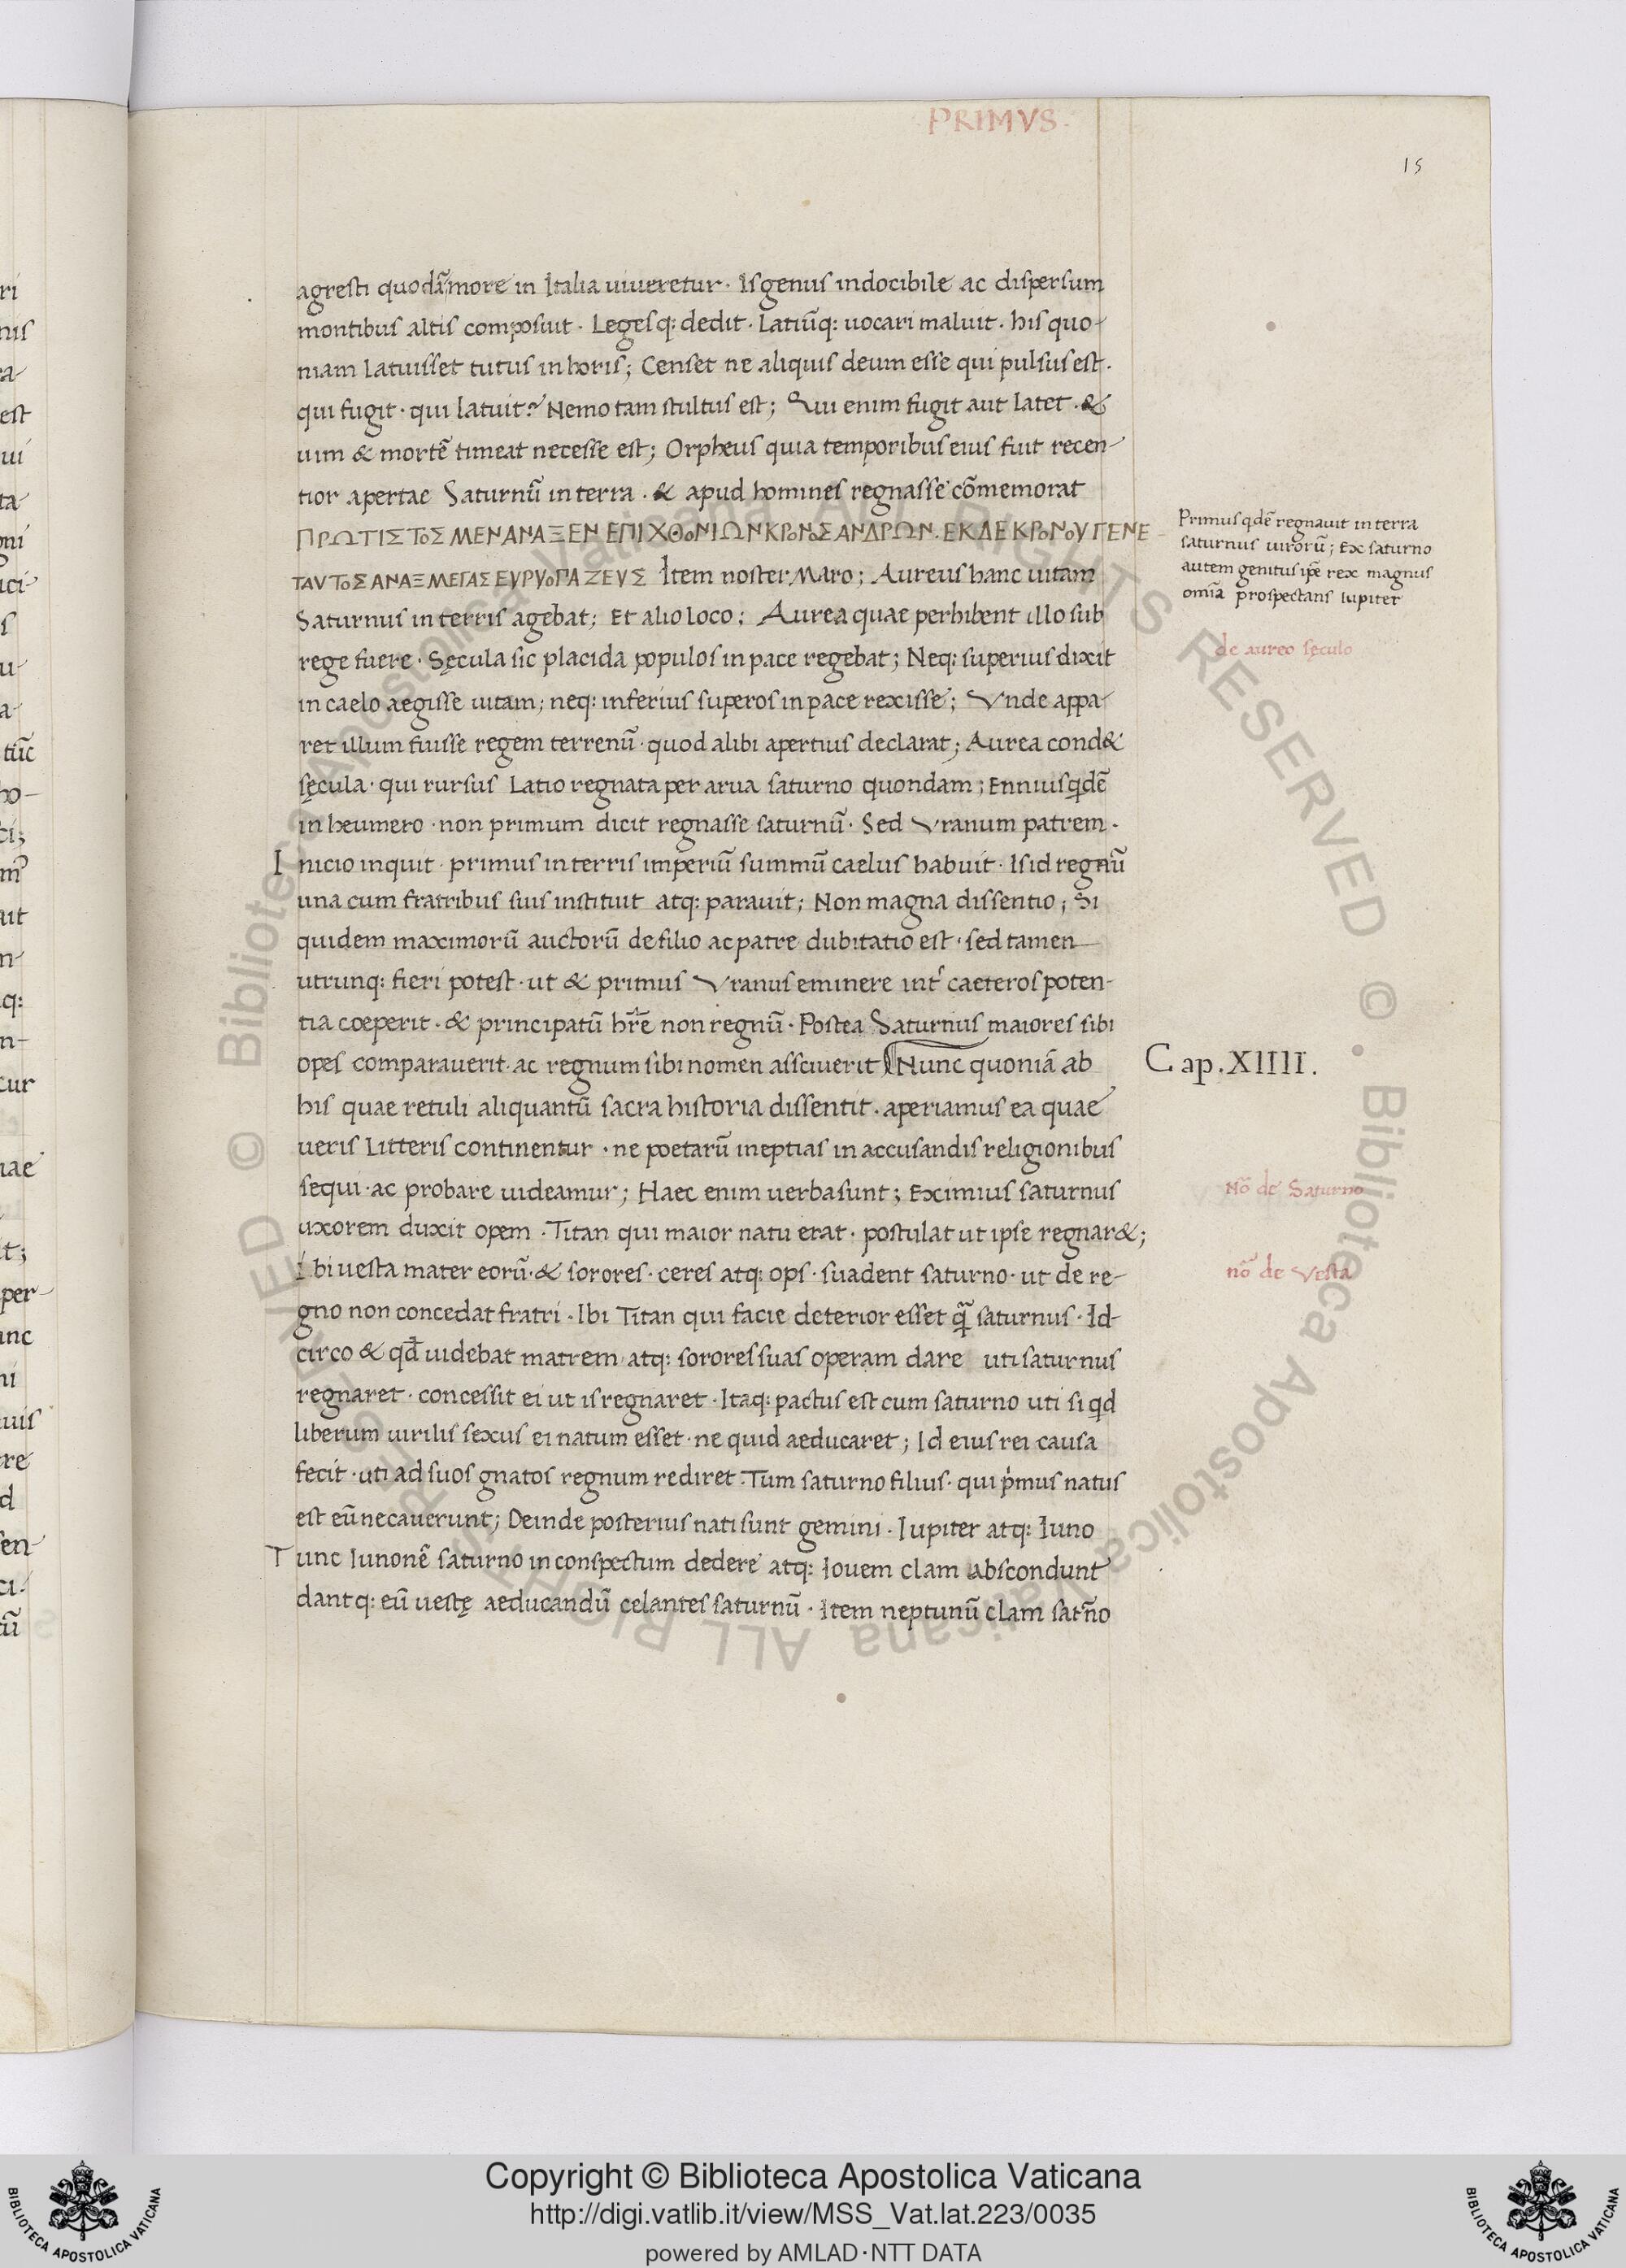 PRIMVS.
15
agresti quodã more in Italia uiueretur. Is genus indocibile ac dispersum
montibus altis composuit. Legesq: dedit. Latiũq: uocari maluit. his quo-
niam latuisset tutus in horis; Censet ne aliquis deum esse qui pulsus est.
qui fugit. qui latuit? Nemo tam stultus est; Qui enim fugit aut latet. &
uim & mortẽ timeat necesse est; Orpheus quia temporibus eius fuit recen-
tior apertae Saturnũ in terra. & apud homines regnasse cõmemorat
ΠΡΩΤΙΣΤΟΣ ΜΕΝ ΑΝΑΞΕΝ ΕΠΙΧΘΟΝΙΩΝ ΚΡΟΝΟΣ ΑΝΔΡΩΝ. ΕΚ ΔΕ ΚΡΟΝΟΥ ΓΕΝΕ-
ΤΑΥΤΟΣ ΑΝΑΞ ΜΕΓΑΣ ΕΥΡΥΟΠΑ ΖΕΥΣ Item noster Maro; Aureus hanc uitam
Saturnus in terris agebat; Et alio loco; Aurea quae perhibent illo sub
rege fuere. Sęcula sic placida populos in pace regebat; Neq: superius dixit
in caelo aegisse uitam; neq: inferius superos in pace rexisse; Vnde appa-
ret illum fuisse regem terrenũ. quod alibi apertius declarat; Aurea cond&
sęcula. qui rursus Latio regnata per arua saturno quondam; Ennius qdẽ
in heumero. non primum dicit regnasse saturnũ. Sed Vranum patrem.
Inicio inquit. primus in terris imperiũ summũ caelus habuit. Is id regnũ
una cum fratribus suis instituit atq: parauit; Non magna dissentio; Si
quidem maximorũ auctorũ de filio ac patre dubitatio est. sed tamen
utrunq: fieri potest. ut & primus Vranus eminere int' caeteros poten-
tia coeperit. & principatũ hr̃e non regnũ. Postea Saturnus maiores sibi
opes comparauerit. ac regnum sibi nomen assciuerit Nunc quoniã ab
his quae retuli aliquantũ sacra historia dissentit. aperiamus ea quae
ueris Litteris continentur. ne poetarũ ineptias in accusandis religionibus
sequi. ac probare uideamur; Haec enim uerba sunt; Eximius saturnus
uxorem duxit opem. Titan qui maior natu erat. postulat ut ipse regnar&;
Ibi uesta mater eorũ. & sorores. ceres atq: ops. suadent saturno. ut de re-
gno non concedat fratri. Ibi Titan qui facie deterior esset q̃ saturnus. Id-
circo & qđ uidebat matrem atq: sorores suas operam dare uti saturnus
regnaret. concessit ei ut is regnaret. Itaq: pactus est cum saturno uti si qd
liberum uirilis sexus ei natum esset. ne quid aeducaret; Id eius rei causa
fecit. uti ad suos gnatos regnum rediret. Tum saturno filius. qui p'mus natus
est eũ necauerunt; Deinde posterius nati sunt gemini. Iupiter atq: Iuno
Tunc Iunonẽ saturno in conspectum dedere atq: Iouem clam abscondunt
dantq: eũ uestę aeducandũ celantes saturnũ. Item neptunũ clam satr̃no
Primus qdẽ regnauit in terra
saturnus uirorũ; Ex saturno
autem genitus ip̃e rex magnus
omĩa prospectans Iupiter
de aureo sęculo
Cap. XIIII.
Nõ de Saturno
nõ de Vesta
Copyright © Biblioteca Apostolica Vaticana
http://digi.vatlib.it/view/MSS_Vat.lat.223/0035
powered by AMLAD·NTT DATA